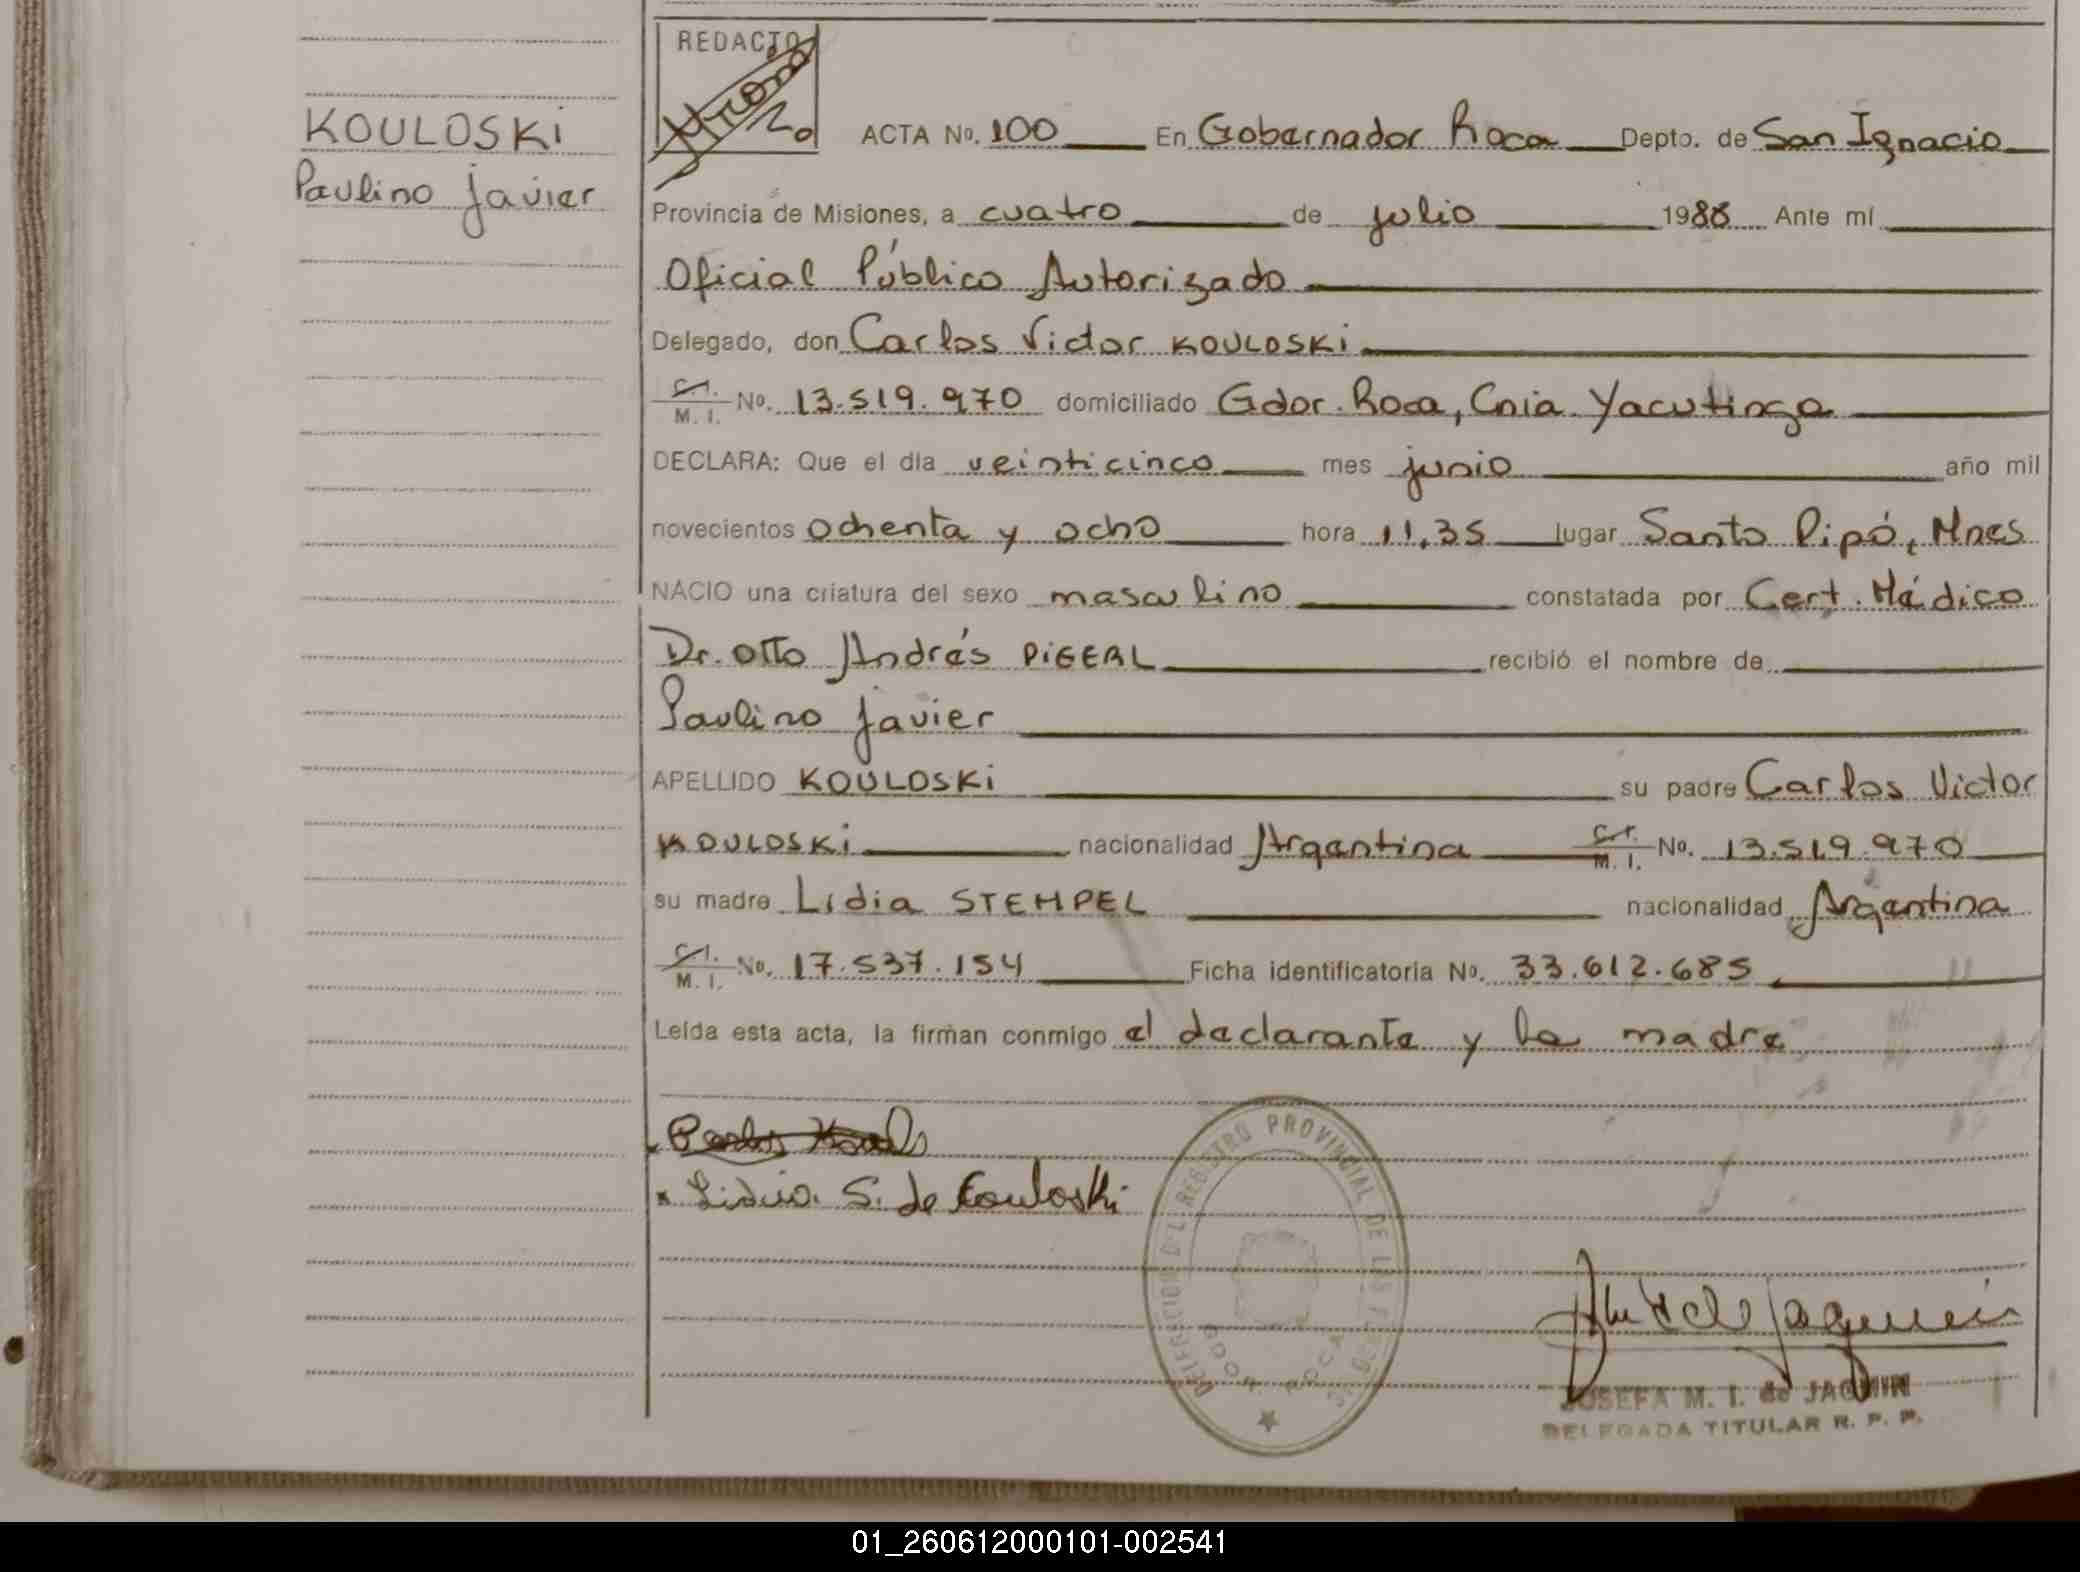 KOULOSKi
Paulino Javier
REDACTO
ACTA No. 100 En Gobernador Roca Depto. de San Ignacio
Provincia de Misiones, a cuatro de julio 1988 Ante mí
Oficial Público Autorizado
Delegado, don Carlos Victor KOULOSKi
C.I. M. I. No. 13.519.970 domiciliado Gdor. Roca, Cnia Yacutinga
DECLARA: Que el día veinticinco mes junio año mil
novecientos ochenta y ocho hora 11,35 lugar Santo Pipó, Mnes
NACIO una criatura del sexo masculino constatada por Cert. Médico
Dr. Otto Andrés PiGERL recibió el nombre de
Paulino Javier
APELLIDO KOULOSKi su padre Carlos Victor
KOULOSKi nacionalidad Argentina C.I. M. I. No. 13.519.970
su madre Lidia STEMPEL nacionalidad Argentina
C.I. M. I. No. 17.537.154 Ficha identificatoria No. 33.612.685
Leída esta acta, la firman conmigo el declarante y la madre
Lidia S. de Kouloski
DELEGACION DEL REGISTRO PROVINCIAL DE LAS PERSONAS
GDOR. ROCA
JOSEFA M. I. de JAQMIN
DELEGADA TITULAR R. P. P.
01_260612000101-002541